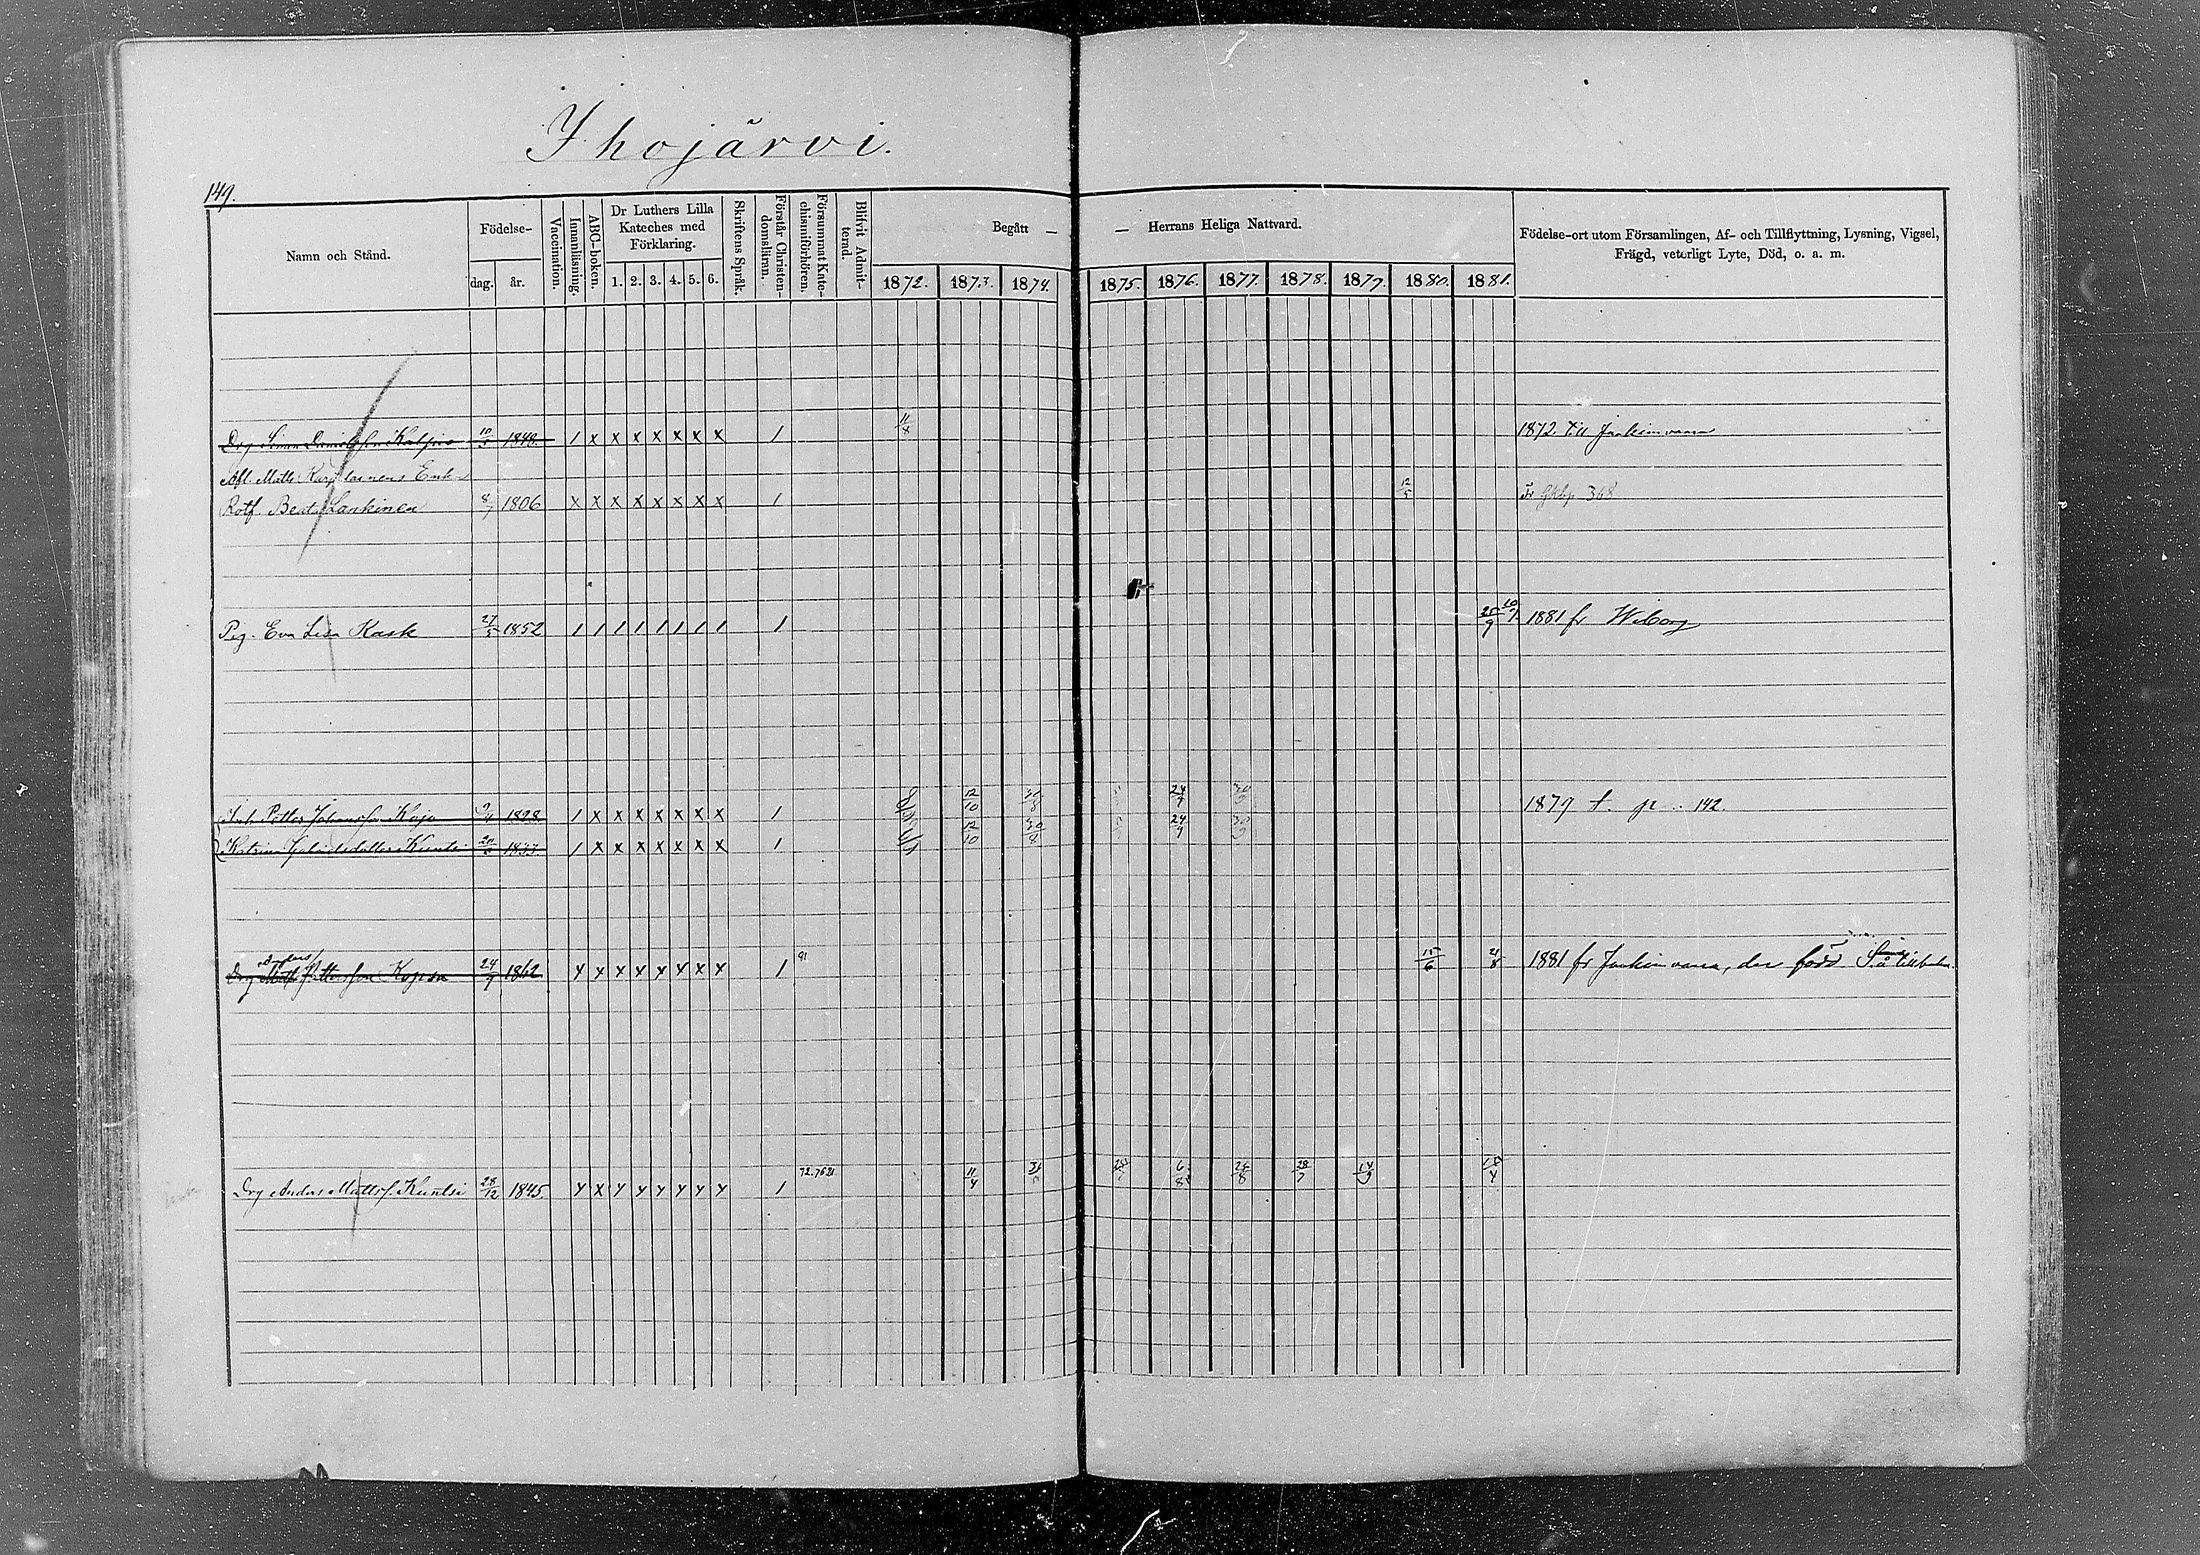 Ihojärvi.
149.
Namn och Stånd.
Födelse-
dag. år.
Vaccination.
Innanläsning.
ABC-boken.
Dr Luthers Lilla Kateches med Förklaring.
1. 2. 3. 4. 5. 6.
Skriftens Språk.
Förstår Christendomsläran.
Försummat Katechismiförhören.
Blifvit Admitterad.
Begått — — Herrans Heliga Nattvard.
1872. 1873. 1874. 1875. 1876. 1877. 1878. 1879. 1880. 1881.
Födelse-ort utom Församlingen, Af- och Tillflyttning, Lysning, Vigsel,
Frägd, veterligt Lyte, Död, o. a. m.
Drg Simon Danielsson 1849. / x x x x x x x / 11/8 1872 till Jaakimvaara
Afl. Matts Enka
Rotf. Beata Laukinen 8/7 1806 x x x x x x x x / 12/5 fr Gkbp 368
Pig. Eva Lisa Kask 27/5 1852 / / / / / / / / / 25/9 1881 fr Wiborg
Petter Johansson Kaja 1828. / x x x x x x x / 12/10 30/8 24/9 30/9 1879 t. p. 142.
Katrina Gabrielsdotter Kuntsi 20 1833 / x x x x x x x / 12/10 30/8 24/9 30/9
Anders
Drg Matts Pettersson Kopsa 24/9 1862 y y y y y y x x / 81 15/6 21/8 1881 fr Jaakimvaara, der född
Drg Anders Mattss. Kuntsi 28/12 1845 y x y y y y y y / 72.76 81 11/4 6/8 26/8 28/7 14/9 18/4